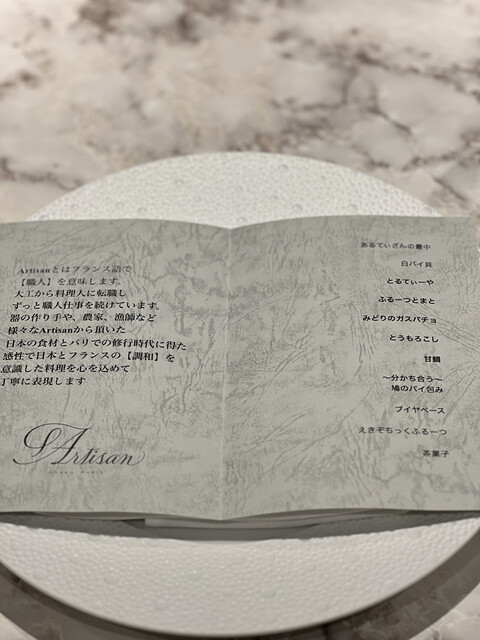 Artisanとはフランス語で
【職人】を意味します
大工から料理人に転職し
ずっと職人仕事を続けています
器の作り手や、農家、漁師など
様々なArtisanから頂いた
日本の食材とパリでの修行時代に得た
感性で日本とフランスの【調和】を
意識した料理を心を込めて
丁寧に表現します
L'Artisan
あるてぃざんの最中
白バイ貝
とるてぃーや
ふるーつとまと
みどりのガスパチョ
とうもろこし
甘鯛
～分かち合う～
鳩のパイ包み
ブイヤベース
えきぞちっくふるーつ
茶菓子